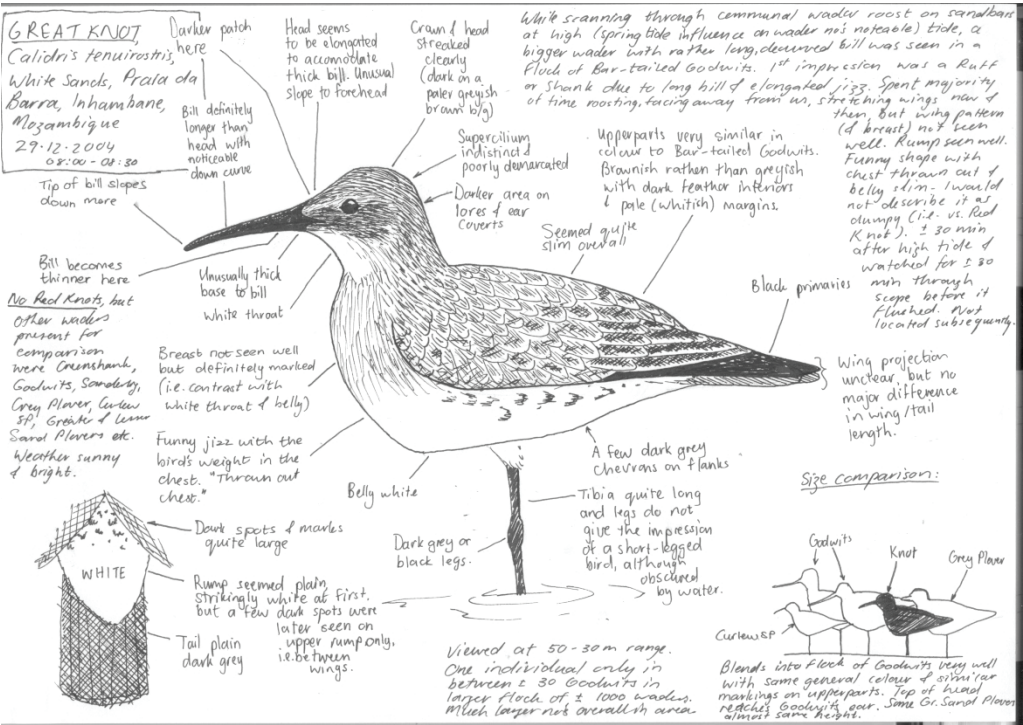 GREAT KNOT,
Calidris tenuirostris,
White Sands, Praia da
Barra, Inhambane,
Mozambique
29.12.2004
08:00 - 08:30
Darker patch
here
Head seems
to be elongated
to accomodate
thick bill. Unusual
slope to forehead
Crown & head
streaked
clearly
(dark on a
paler greyish
brown b/g)
While scanning through communal wader roost on sandbars
at high (spring tide influence on wader no's noteable) tide, a
bigger wader with rather long, decurved bill was seen in a
flock of Bar-tailed Godwits. 1st impression was a Ruff
or Shank due to long bill & elongated jizz. Spent majority
of time roosting, facing away from us, stretching wings now &
then, but wing pattern
(& breast) not seen
well. Rump seen well.
Funny shape with
chest thrown out &
belly slim - I would
not describe it as
dumpy (i.e. vs. Red
Knot). ± 30 min
after high tide &
watched for ± 30
min through
scope before it
flushed. Not
located subsequently.
Bill definitely
longer than
head with
noticeable
down curve
Supercilium
indistinct &
poorly demarcated
Upperparts very similar in
colour to Bar-tailed Godwits.
Brownish rather than greyish
with dark feather interiors
& pale (whitish) margins.
Tip of bill slopes
down more
Darker area on
lores & ear
coverts
Seemed quite
slim overall
Bill becomes
thinner here
Unusually thick
base to bill
White throat
Black primaries
No Red Knots, but
other waders
present for
comparison
were Greenshank,
Godwits, Sanderling,
Grey Plover, Curlew
SP, Greater & Lesser
Sand Plovers etc.
Weather sunny
& bright.
Breast not seen well
but definitely marked
(i.e. contrast with
white throat & belly)
Wing projection
unclear, but no
major difference
in wing/tail
length.
Funny jizz with the
bird's weight in the
chest. "Thrown out
chest."
Belly white
A few dark grey
chevrons on flanks
Tibia quite long
and legs do not
give the impression
of a short-legged
bird, although
obscured
by water.
Dark grey or
black legs.
Size comparison:
Godwits
Knot
Grey Plover
Curlew SP
Dark spots & marks
quite large
WHITE
Rump seemed plain
strikingly white at first.
but a few dark spots were
later seen on
upper rump only,
i.e. between
wings.
Tail plain
dark grey
Viewed at 50-30m range.
One individual only in
between ± 30 Godwits in
larger flock of ± 1000 waders.
Much larger no's overall in area
Blends into flock of Godwits very well
with same general colour & similar
markings on upperparts. Top of head
reaches Godwits ear. Some Gr. Sand Plover
almost same height.